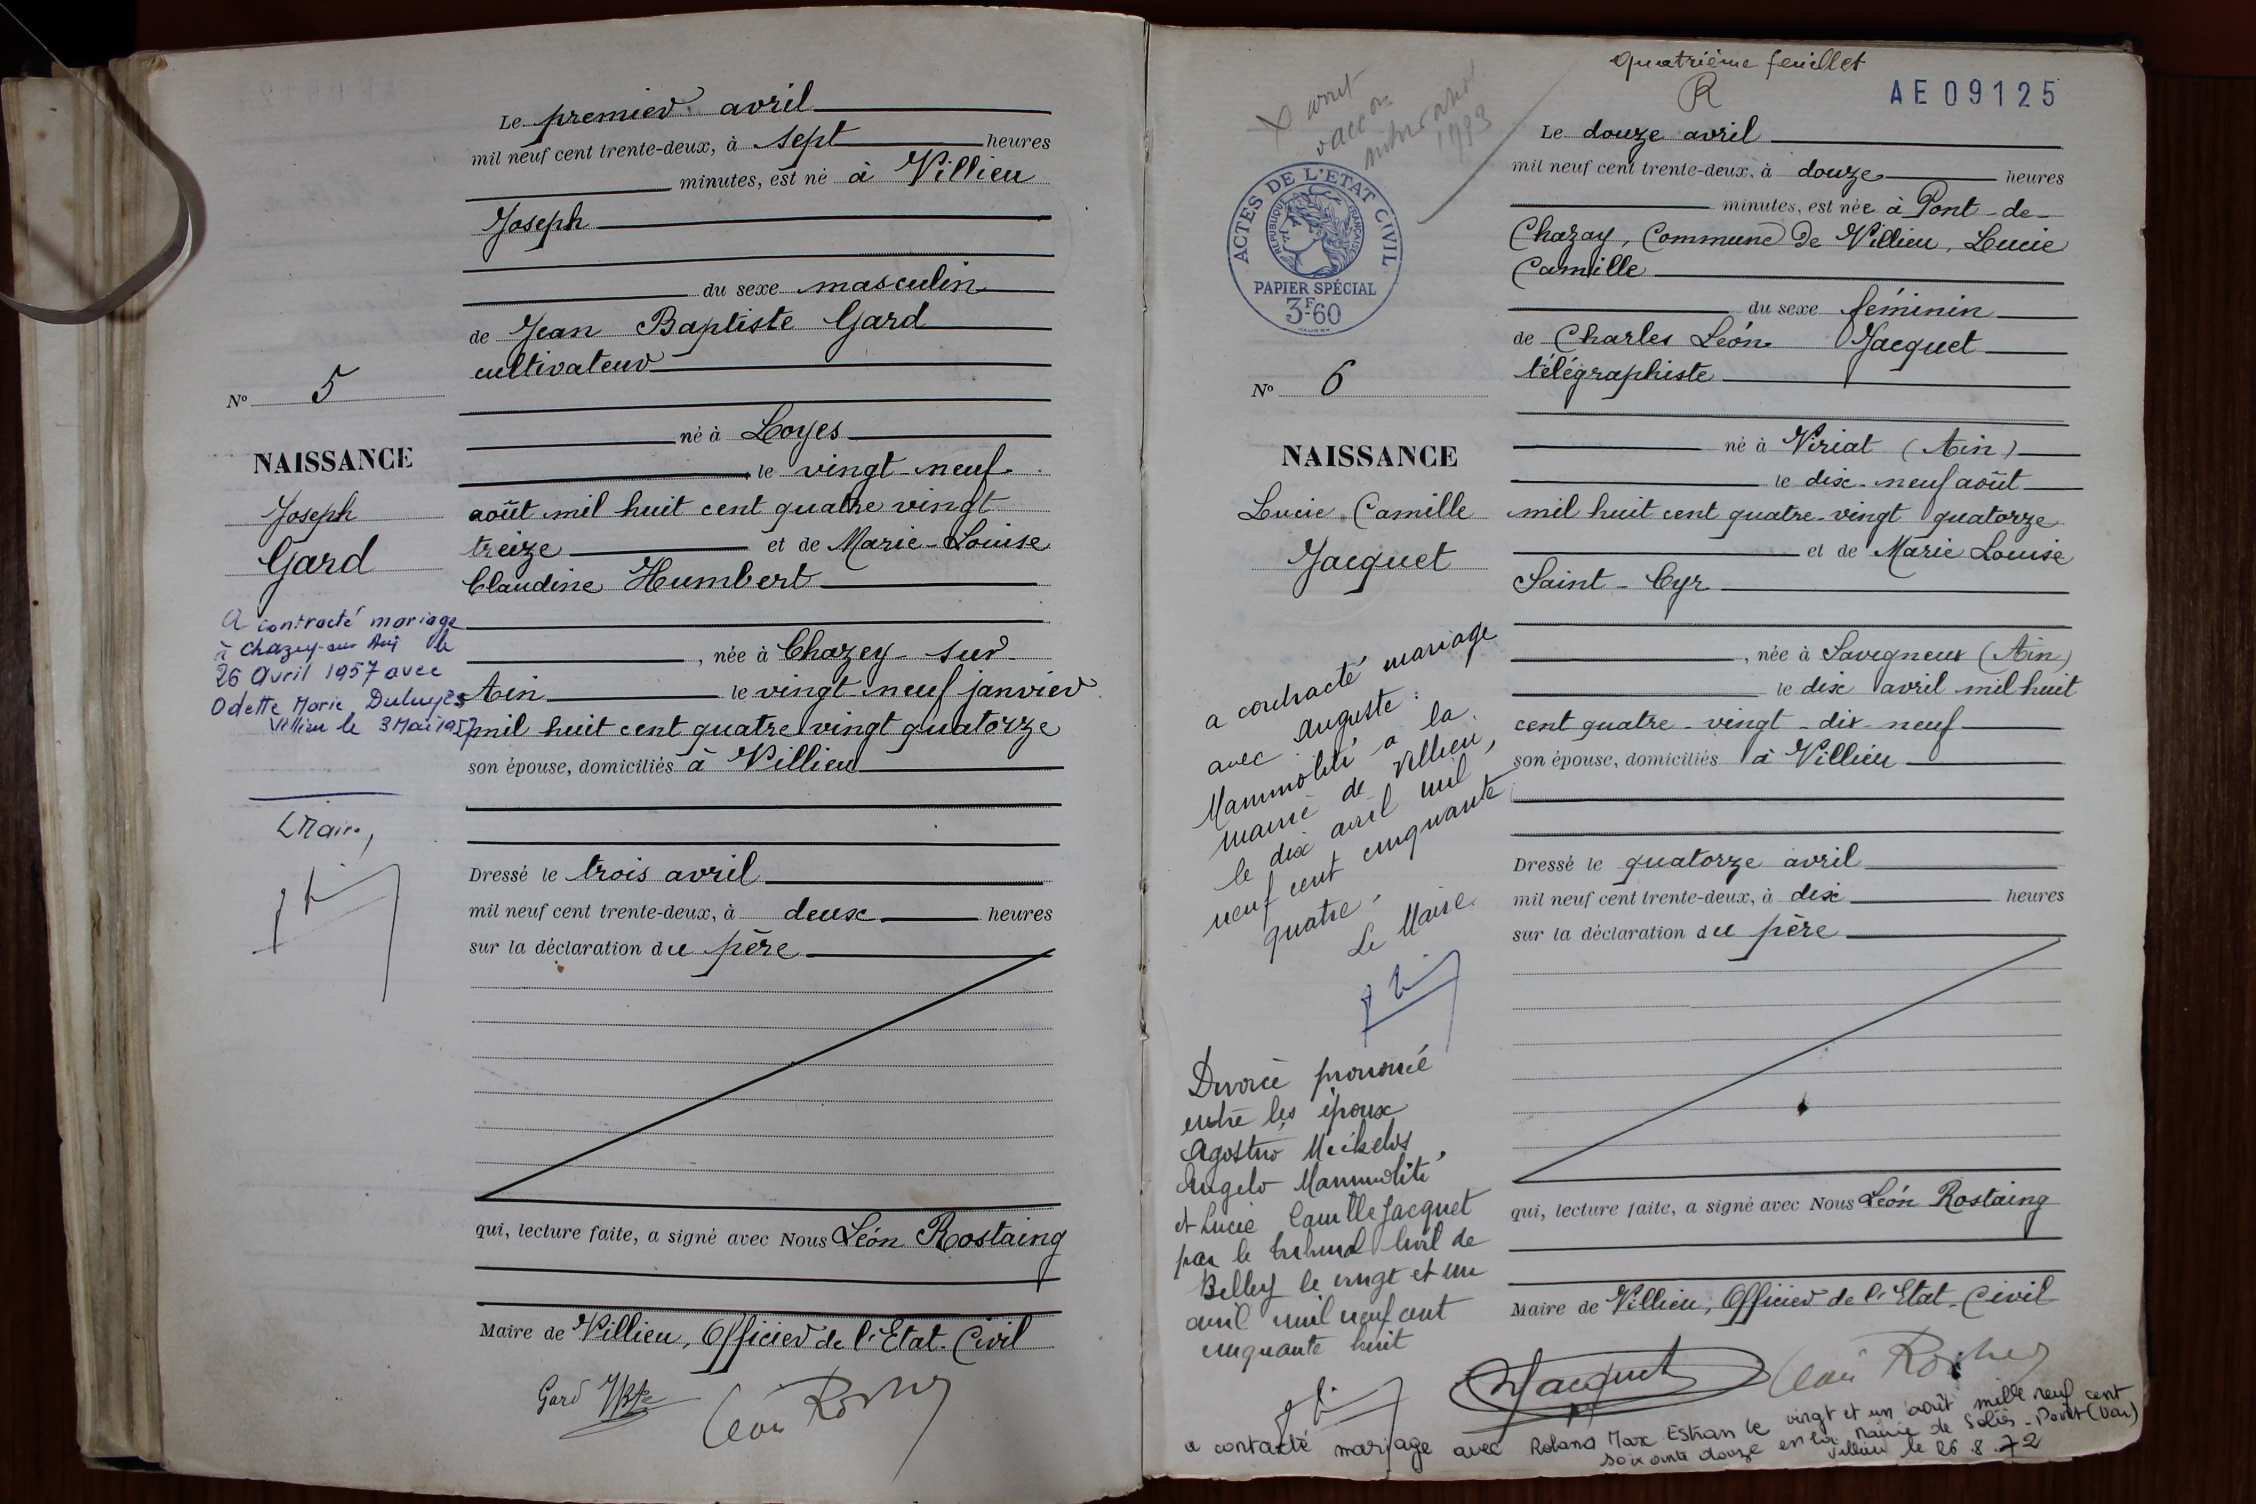 Le premier avril
mil neuf cent trente-deux, à sept heures
minutes, est né à Villieu
Joseph
du sexe masculin
de Jean Baptiste Gard
cultivateur
né à Loyes
le vingt-neuf
août mil huit cent quatre vingt
treize et de Marie-Louise
Claudine Humbert
, née à Chazey-sur-
Ain le vingt-neuf janvier
mil huit cent quatre vingt quatorze
son épouse, domiciliés à Villieu
Dressé le trois avril
mil neuf cent trente-deux, à deux heures
sur la déclaration du père
qui, lecture faite, a signé avec Nous Léon Rostaing
Maire de Villieu, Officier de l'Etat-Civil
Gard
Léon
No 5
NAISSANCE
Joseph
Gard
A contracté mariage
à Chazey-sur Ain le
26 Avril 1957 avec
Odette Marie
Villieu le 3 Mai 1957
Maire,
quatrième feuillet
R
AE 09125
1933
ACTES DE L'ETAT CIVIL
REPUBLIQUE FRANÇAISE
PAPIER SPÉCIAL
3F60
Le douze avril
mil neuf cent trente-deux, à douze heures
minutes, est née à Pont-de-
Chazay, Commune de Villieu, Lucie
Camille
du sexe féminin
de Charles Léon Jacquet
télégraphiste
né à Viriat (Ain)
le dix-neuf août
mil huit cent quatre-vingt quatorze
et de Marie Louise
Saint-Cyr
, née à Savigneux (Ain)
le dix avril mil huit
cent quatre-vingt-dix-neuf
son épouse, domiciliés à Villieu
Dressé le quatorze avril
mil neuf cent trente-deux, à dix heures
sur la déclaration du père
qui, lecture faite, a signé avec Nous Léon Rostaing
Maire de Villieu, Officier de l'Etat-Civil
Jacquet
Léon
No 6
NAISSANCE
Lucie Camille
Jacquet
a contracté mariage
avec Auguste
Mammoliti à la
mairie de Villieu,
le dix avril mil
neuf cent cinquante
quatre.
Le Maire
Divorce prononcé
entre les époux
Agostino
Angelo Mammoliti
et Lucie Camille Jacquet
par le tribunal civil de
Belley le vingt et un
avril mil neuf cent
cinquante huit
a contacté mariage avec Roland Max le vingt et un août mille neuf cent
soixante douze en la Mairie de Soliès-Pont (Var)
Villieu le 26.8.72